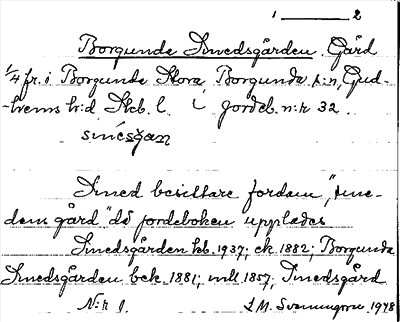 1 — 2
Borgunda Smedsgården. Gård
1/4 fr. i Borgunda Stora, Borgunda s:n, Gud-
hems h:d Skb. l. i jordeb. n:r 32.
smésgan
Smed besittare fordom, "sme-
dens gård" då jordeboken upplades
Smedsgården kb. 1937; ek 1882; Borgunda
Smedsgården bek. 1881; mlt 1857; Smedsgård
N:r 1. L M. Svanungson 1948